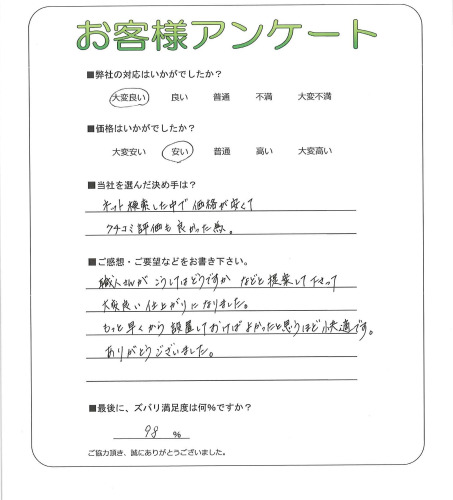 お客様アンケート
■弊社の対応はいかがでしたか？
大変良い 良い 普通 不満 大変不満
■価格はいかがでしたか？
大変安い 安い 普通 高い 大変高い
■当社を選んだ決め手は？
ネット検索した中で価格が安くて
クチコミ評価も良かった為。
■ご感想・ご要望などをお書き下さい。
職人さんが こうしてはどうですか などと提案して下さって
大変良い仕上がりになりました。
もっと早くから設置しておけばよかったと思うほど快適です。
ありがとうございました。
■最後に、ズバリ満足度は何％ですか？
98 ％
ご協力頂き、誠にありがとうございました。